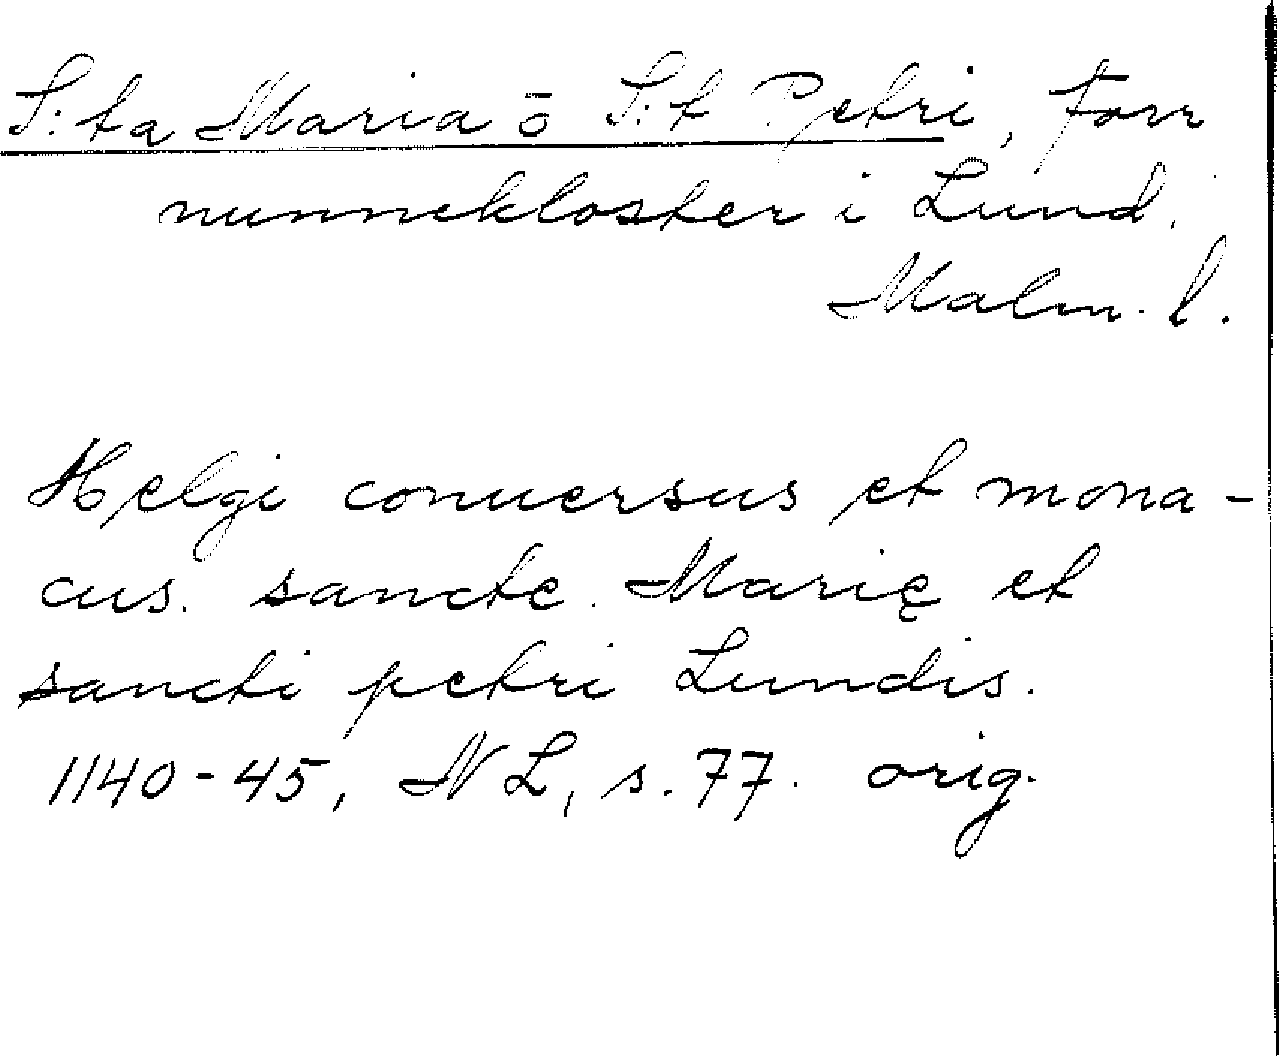 S:ta Maria o̅ S:t Petri, Förr
nunnekloster i Lund.
Malm. l.
Helgi conuersus et mona-
cus. sancte. Marię et
sancti petri Lundis.
1140-45, NL, s. 77. orig.